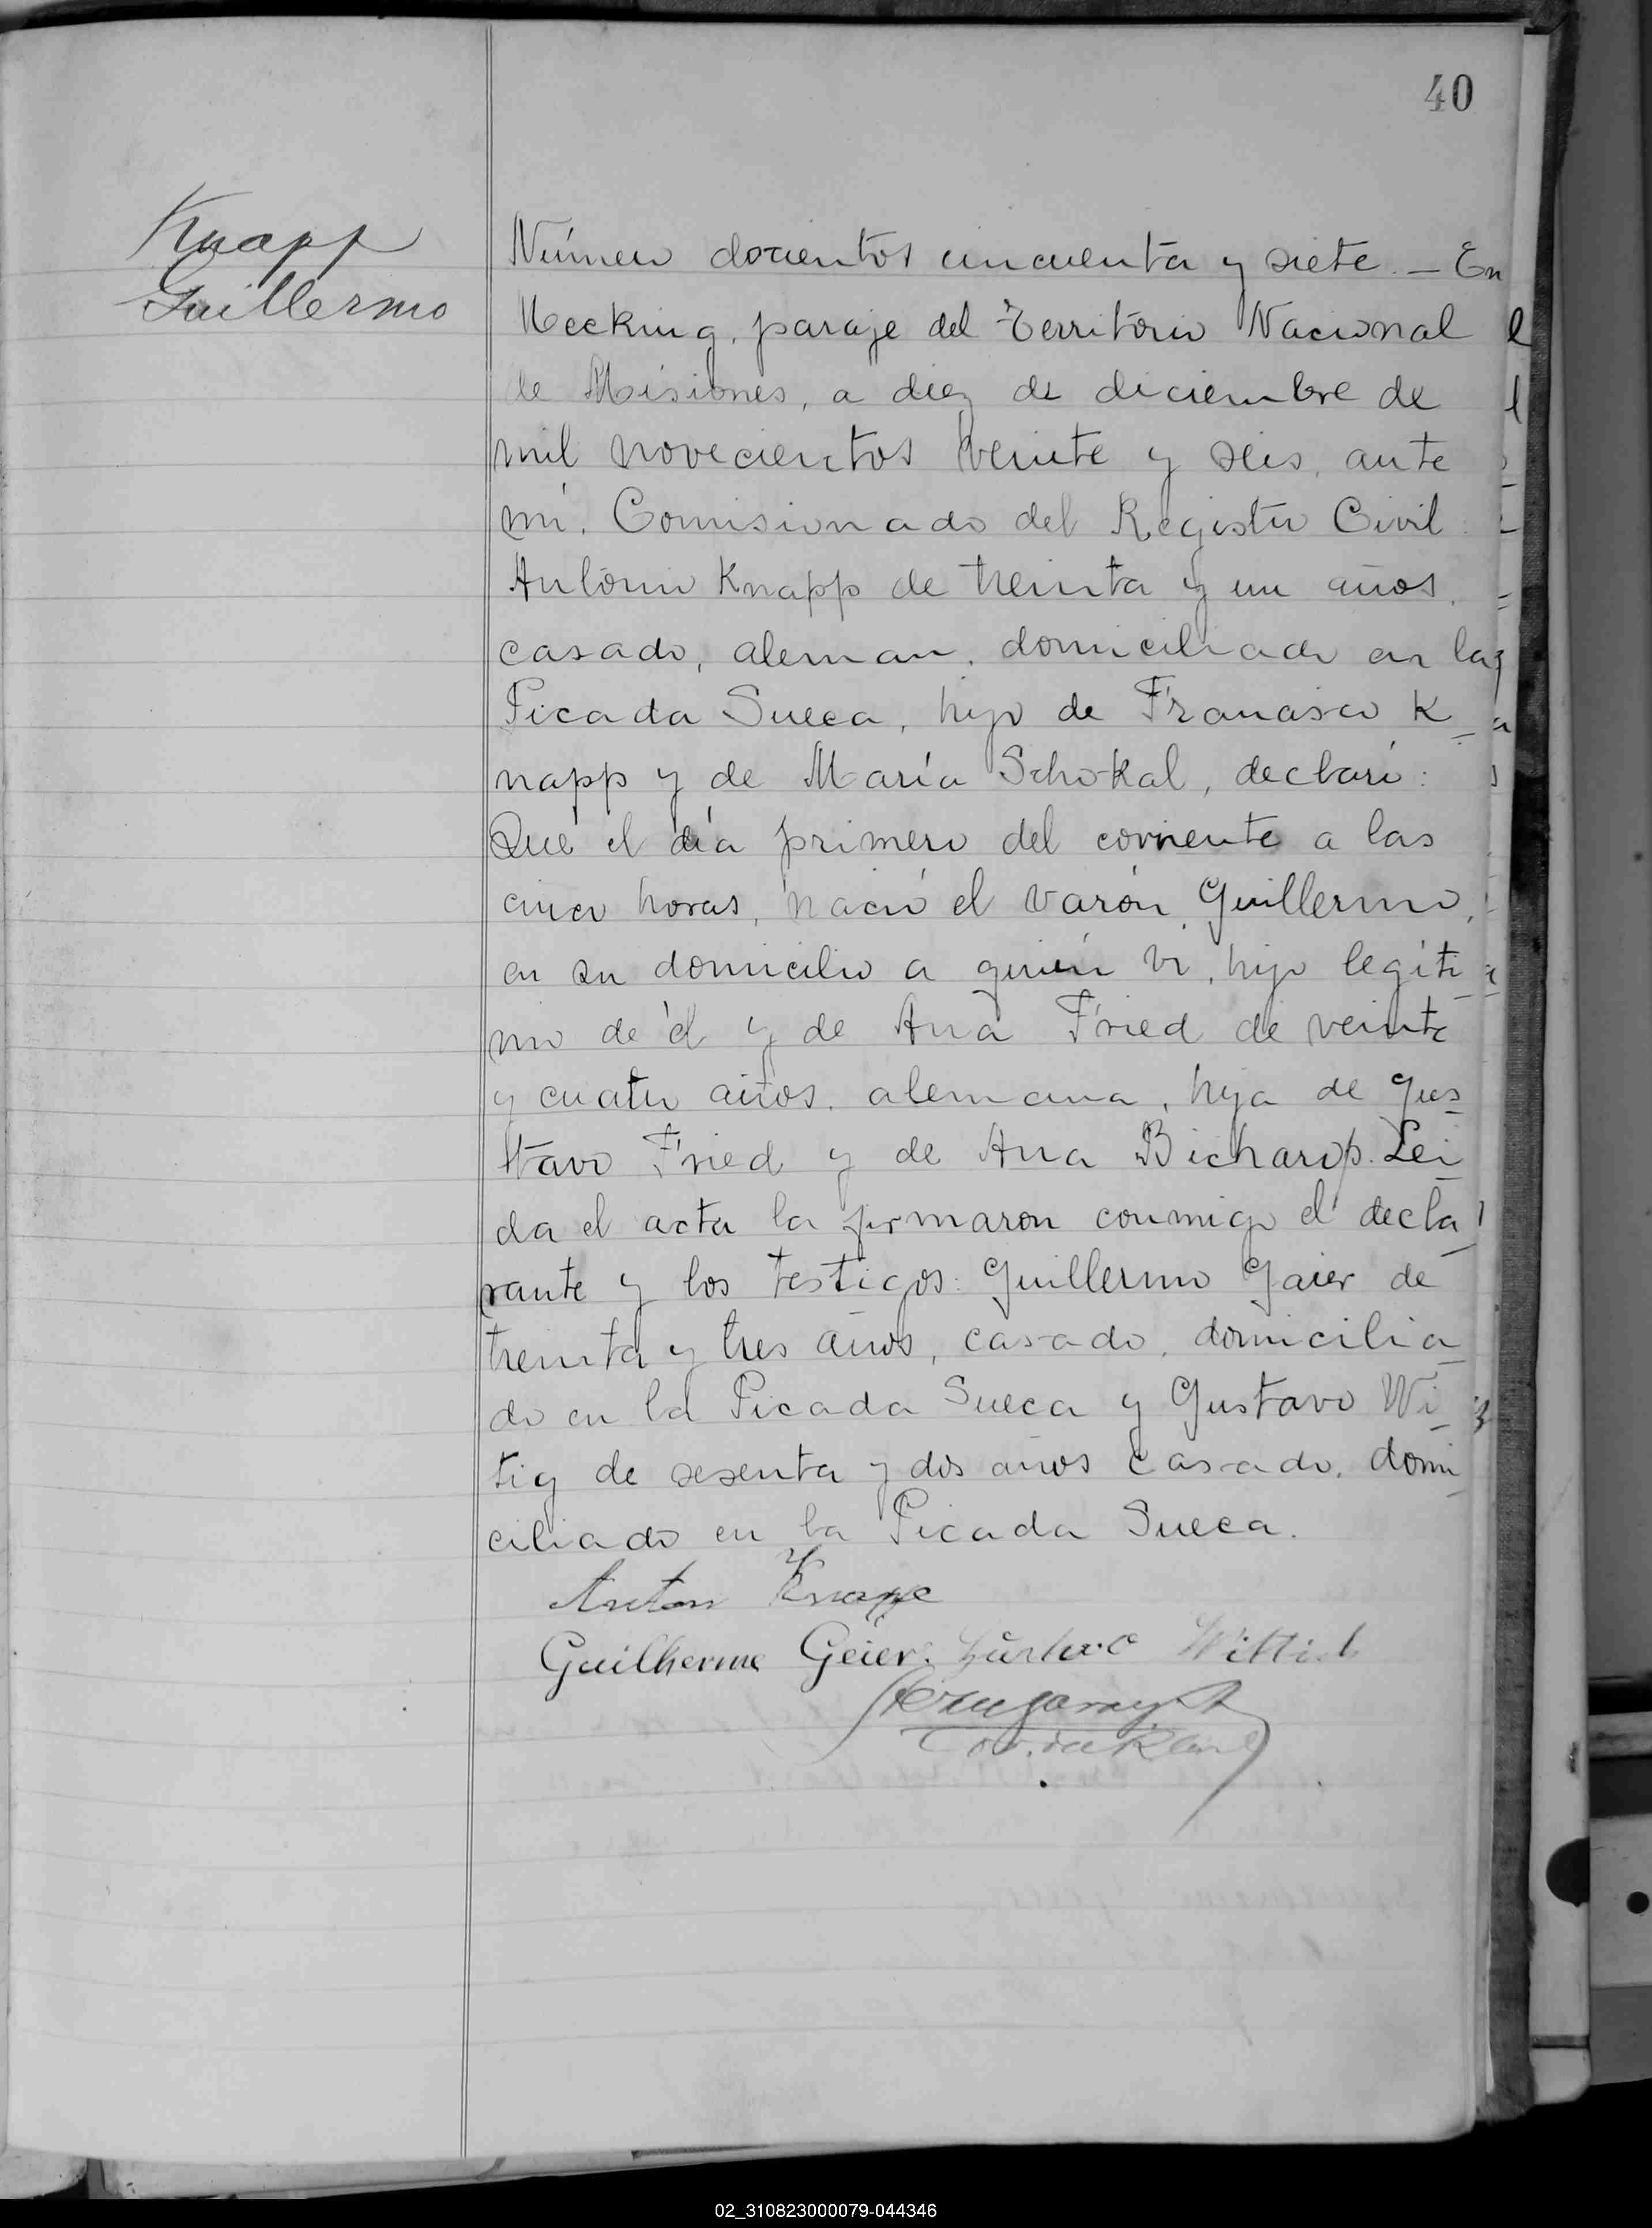 40
Knapp
Guillermo
Número docientos cincuenta y siete. — En
Mecking, paraje del Territorio Nacional
de Misiones, a diez de diciembre de
mil novecientos veinte y seis, ante
mi, Comisionado del Registro Civil:
Antonio Knapp de treinta y un años,
casado, aleman, domiciliado en la
Picada Sueca, hijo de Francisco K-
napp y de María Schokal, declaró:
Que el día primero del corriente a las
cinco horas, nació el varón Guillermo,
en su domicilio a quien vi, hijo legíti-
mo de él y de Ana Fried de veinte
y cuatro años, alemana, hija de Gus-
tavo Fried y de Ana Bicharop. Lei-
da el acta la firmaron conmigo el decla-
rante y los testigos: Guillermo Gaier de
treinta y tres años, casado, domicilia-
do en la Picada Sueca y Gustavo Wi-
tig de sesenta y dos años casado, domi-
ciliado en la Picada Sueca.
Anton Knapp
Guilherme Geier. Gustav Wittich
02_310823000079-044346